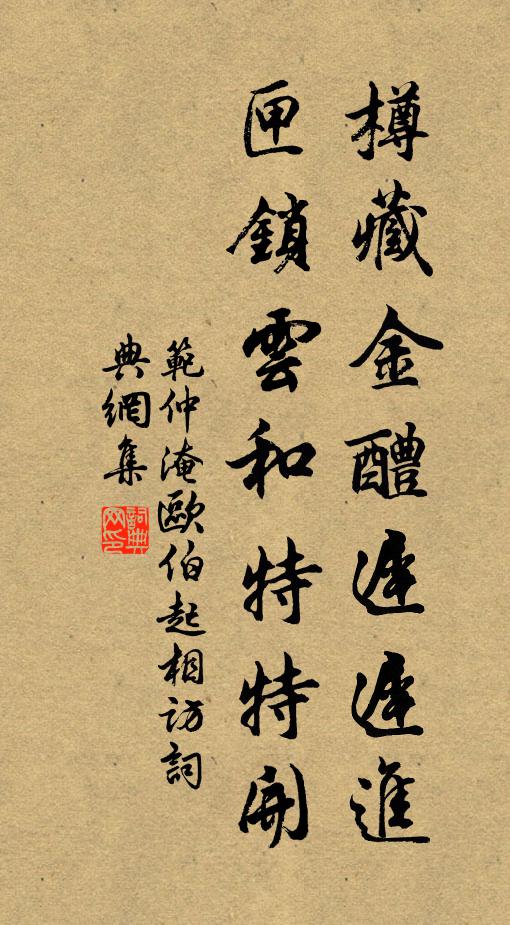 樽藏金醴遲遲進
匣鎖雲和特特開
範仲淹歐伯起相訪詞
典網集
詞典網印